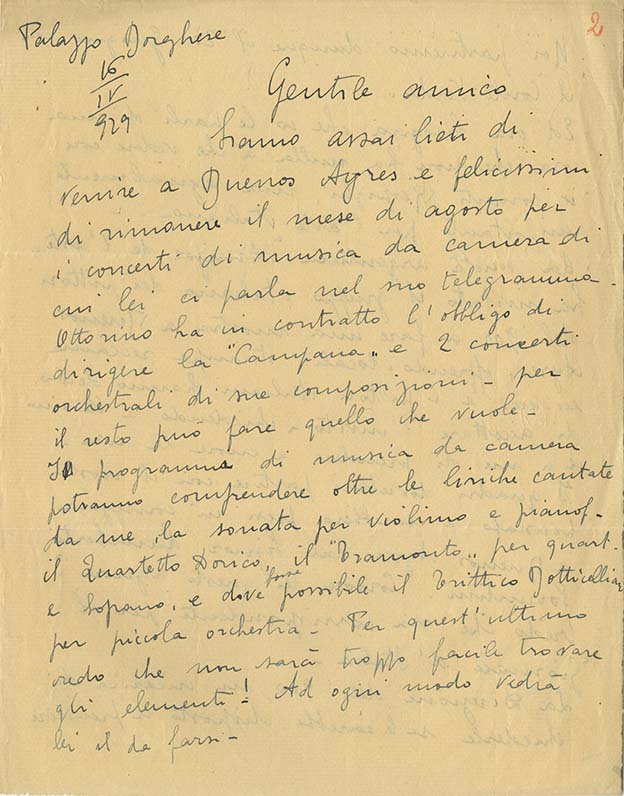 2
Palazzo Borghese
16
IV
929
Gentile amico
Siamo assai lieti di
venire a Buenos Ayres e felicissimi
di rimanere il mese di agosto per
i concerti di musica da camera di
cui lei ci parla nel suo telegramma.
Ottorino ha in contratto l'obbligo di
dirigere la "Campana„ e 2 concerti
orchestrali di sue composizioni - per
il resto può fare quello che vuole -
Il programma di musica da camera
potranno comprendere oltre le liriche cantate
da me, la sonata per violino e pianof -
il Quartetto Dorico, il "Tramonto„ per quart -
e soprano, e dove forse possibile il Trittico Botticellian
per piccola orchestra - Per quest'ultimo
credo che non sarà troppo facile trovare
gli elementi! Ad ogni modo vedrà
lei il da farsi -